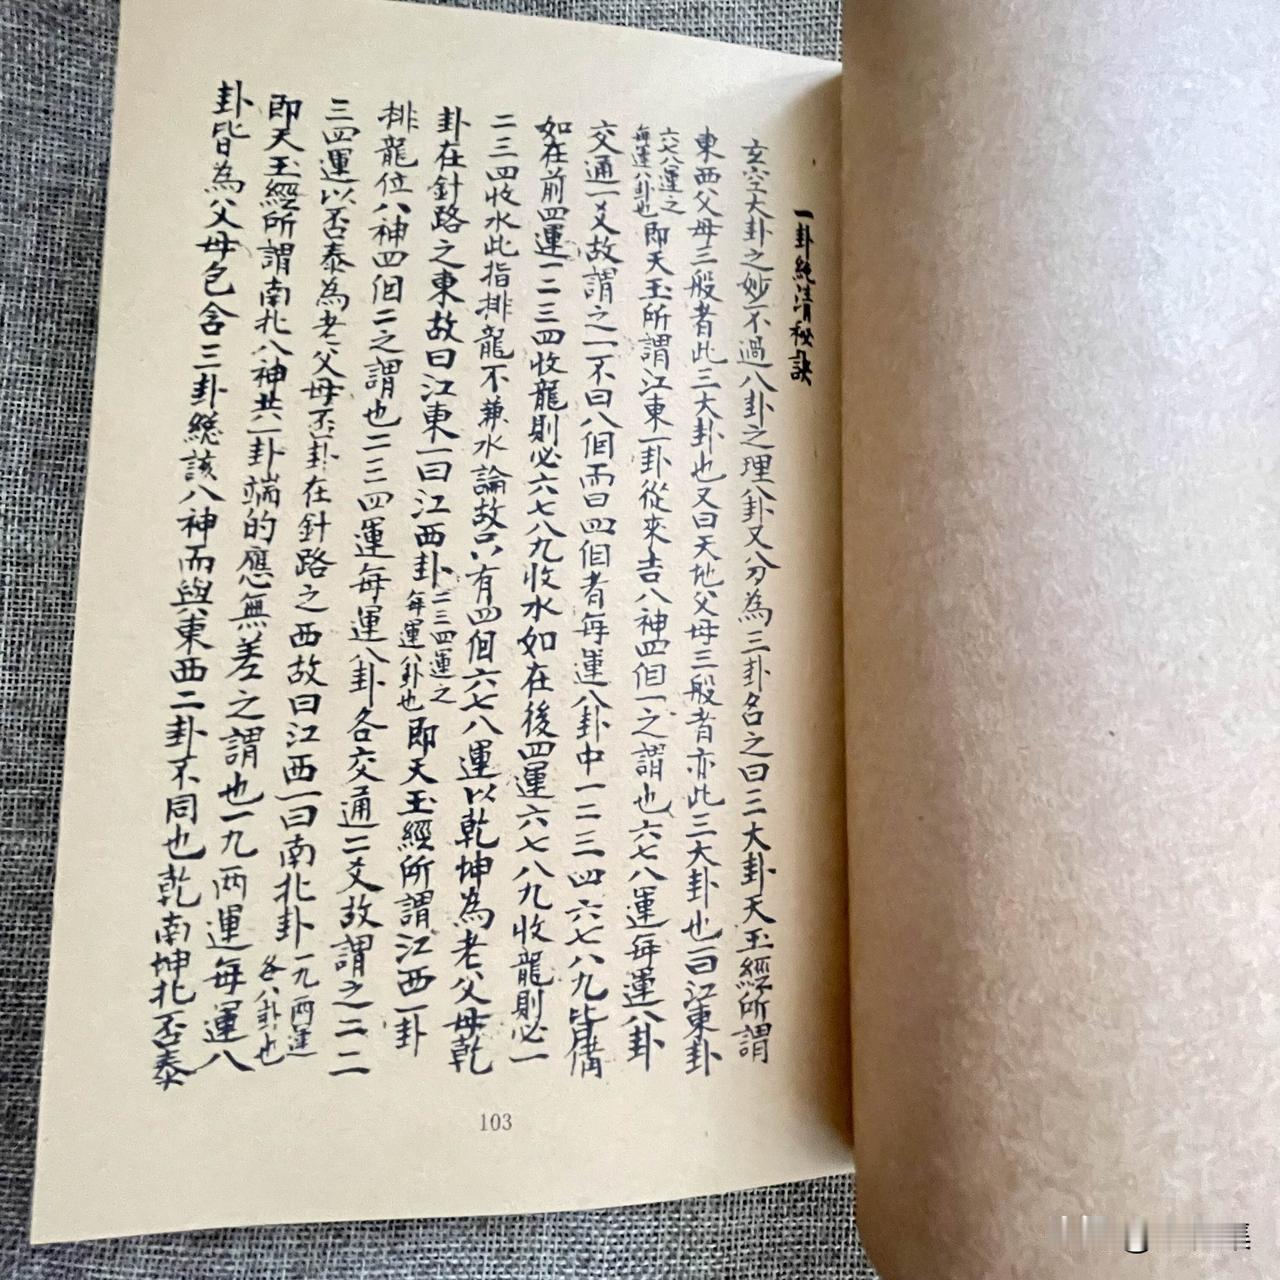 一卦純清秘訣
玄空大卦之妙不過八卦之理八卦又分為三卦名之曰三大卦天玉經所謂
東西父母三般者此三大卦也又曰天地父母三般者亦此三大卦也曰江東卦
六七八運之
每運八卦也
即天玉所謂江東一卦從來吉八神四個一之謂也六七八運每運八卦
交通一爻故謂之一不曰八個而曰四個者每運八卦中一二三四六七八九皆備
如在前四運一二三四收龍則必六七八九收水如在後四運六七八九收龍則必一
二三四收水此指排龍不兼水論故只有四個六七八運以乾坤為老父母乾
卦在針路之東故曰江東一曰江西卦
二三四運之
每運八卦也
即天玉經所謂江西一卦
排龍位八神四個二之謂也二三四運每運八卦各交通二爻故謂之二二
三四運以否泰為老父母否卦在針路之西故曰江西一曰南北卦
一九兩運
各八卦也
即天玉經所謂南北八神共一卦端的應無差之謂也一九兩運每運八
卦皆為父母包含三卦總該八神而與東西二卦不同也乾南坤北否泰
103